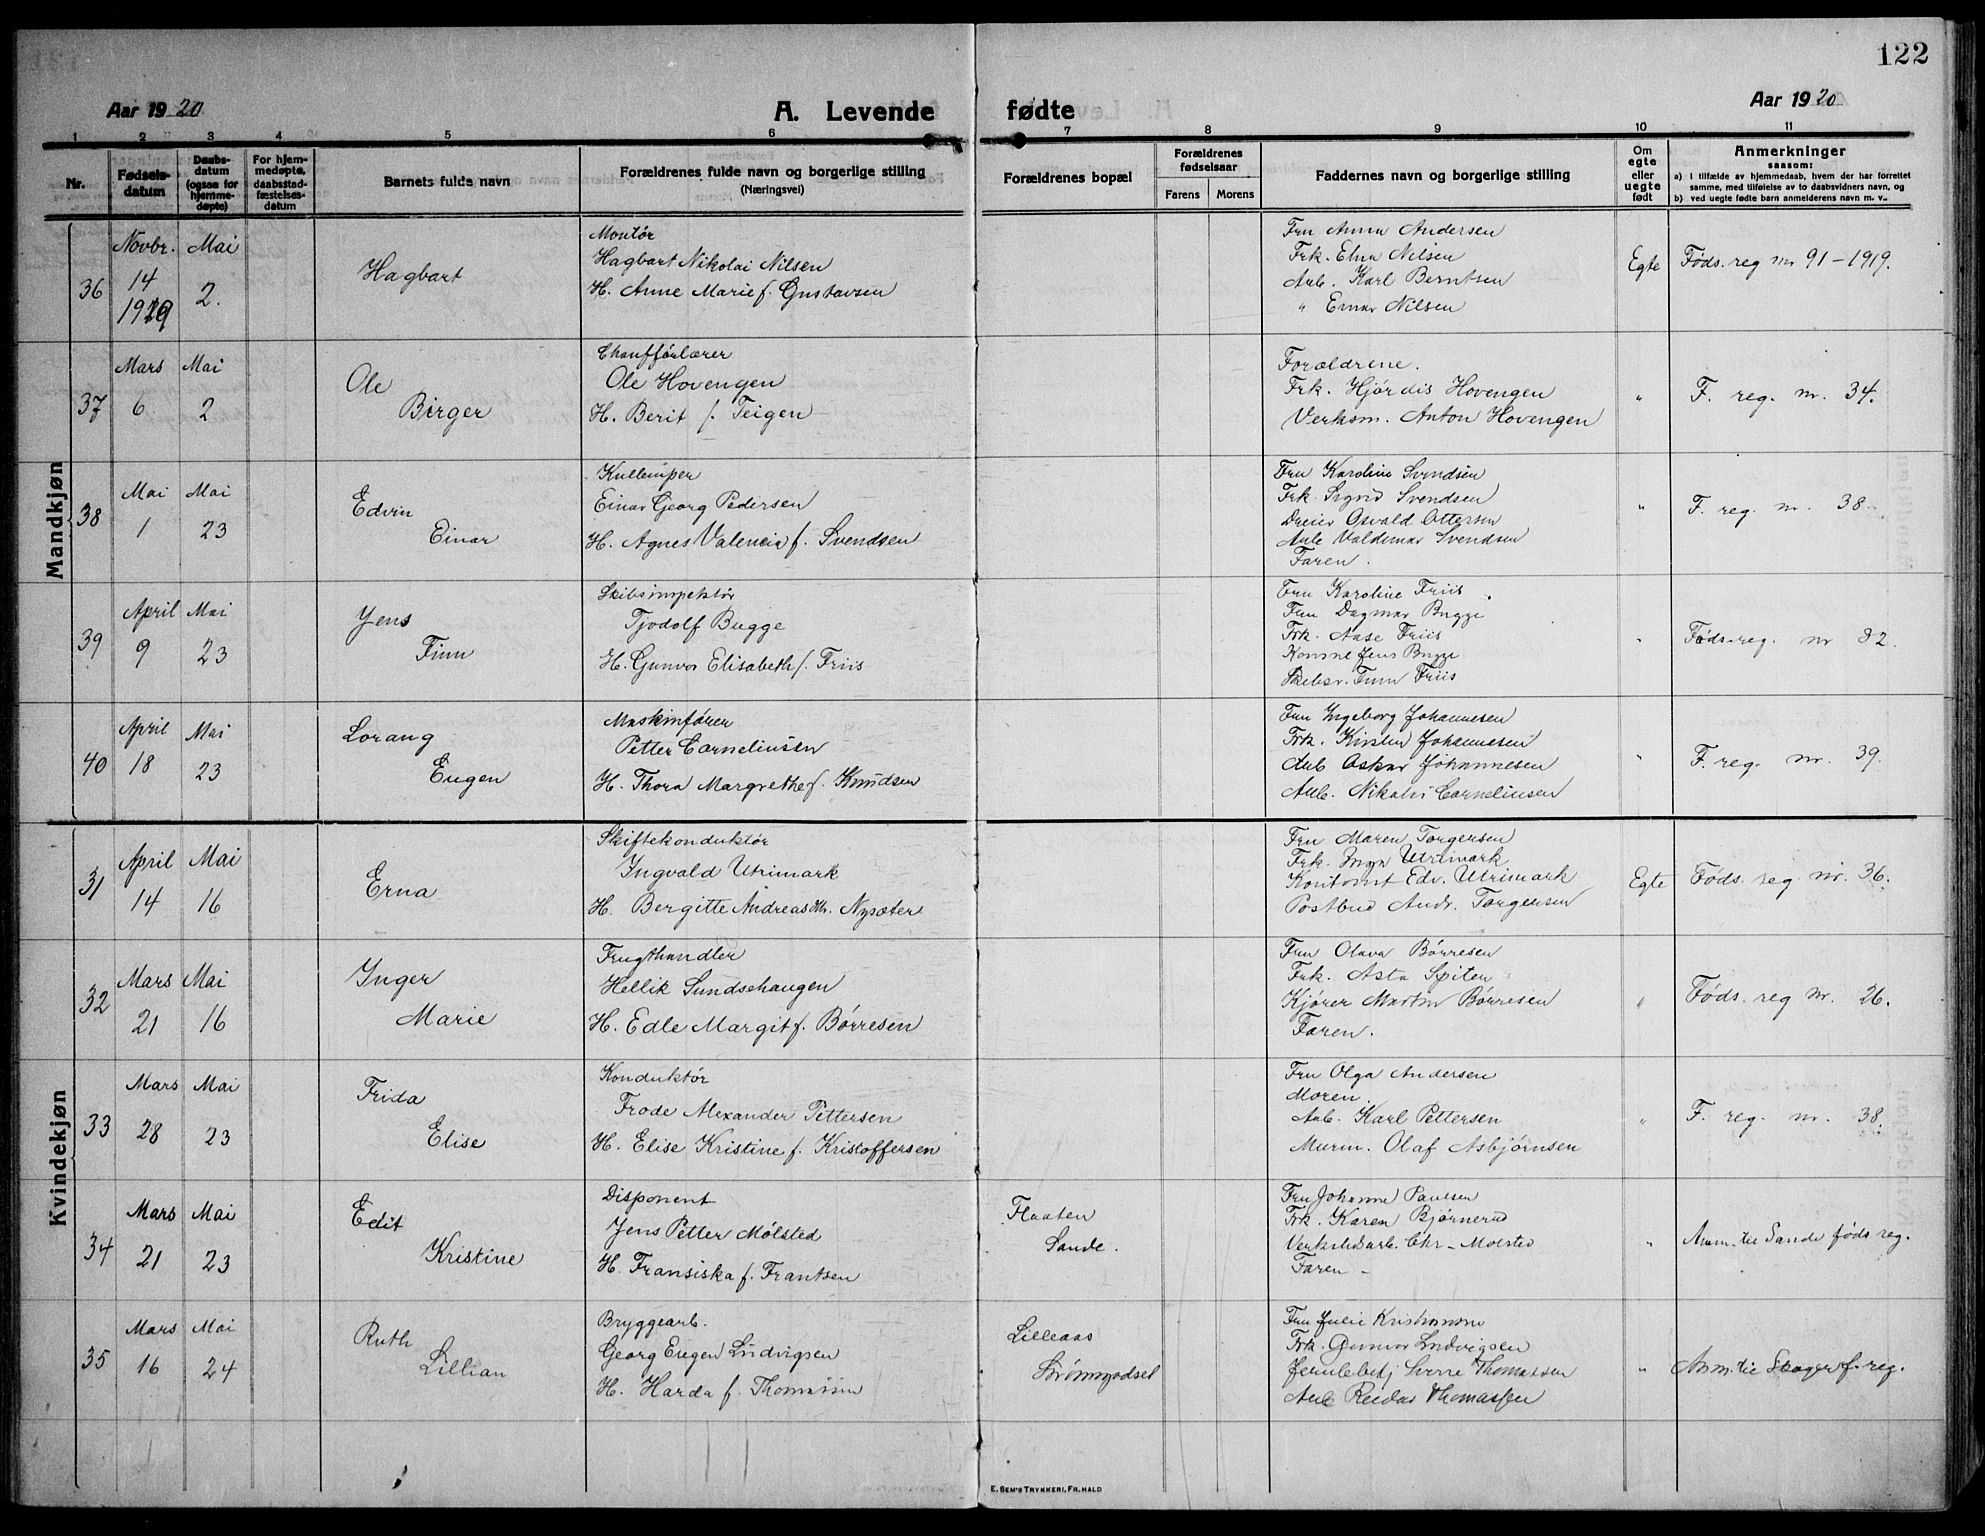 122
Aar 1920
A. Levende
fødte
Aar 1920
1 2 3 4 5 6 7 8 9 10 11
Nr.
Fødsels-
datum
Daabs-
datum
(ogsaa for
hjemme-
døpte)
For hjem-
medøpte,
daabsstad-
fæstelses-
datum
Barnets fulde navn
Forældrenes fulde navn og borgerlige stilling
(Næringsvei)
Forældrenes bopæl
Forældrenes
fødselsaar
Farens Morens
Faddernes navn og borgerlige stilling
Om
egte
eller
uegte
født
Anmerkninger
saasom:
a) I tilfælde av hjemmedaab, hvem der har forrettet
samme, med tilføielse av to daabsvidners navn, og
b) ved uegte fødte barn anmelderens navn m. v.
Mandkjøn
36
Novbr.
14
1919
Mai
2.
Hagbart
Montør
Hagbart Nikolai Nilsen
H. Anne Marie f. Gustavsen
Fru Anna Andersen
Frk. Elna Nilsen
Arb. Karl Berntsen
" Einar Nilsen
Egte
Føds. reg nr 91-1919.
37
Mars
6
Mai
2
Ole
Birger
Chaufførlærer
Ole Hovengen
H. Berit f. Teigen
Forældrene.
Frk. Hjørdis Hovengen
Verksm. Anton Hovengen
"
F. reg. nr. 34.
38
Mai
1
Mai
23
Edvin
Einar
Kullemper
Einar Georg Pedersen
H. Agnes Valencia f. Svendsen
Fru Karoline Svendsen
Frk. Sigrid Svendsen
Dreier Osvald Ottersen
Arb Valdemar Svendsen
Faren.
"
F. reg. nr. 38.
39
April
9
Mai
23
Jens
Finn
Skibsinspektør
Tjodolf Bugge
H. Gunvor Elisabeth f. Friis
Fru Karoline Friis
Fru Dagmar Bugge
Frk. Aase Friis
Jens Bugge
Skibsr. Finn Friis
"
Føds. reg. nr 32.
40
April
18
Mai
23
Lorang
Eugen
Maskinfører
Petter Corneliusen
H. Thora Margrethe f. Knudsen
Fru Ingeborg Johannesen
Frk. Kirsten Johannesen
Arb Oskar Johannesen
Arb. Nikolai Corneliusen
"
F. reg. nr. 39.
Kvindekjøn
31
April
14
Mai
16
Erna
Skiftekonduktør
Ingvald Utrimark
H. Bergitte Andreas dtr. Nysæter
Fru Maren Torgersen
Frk. Inga Utrimark
Kontorist Edv. Utrimark
Postbud Andr. Torgersen
Egte
Føds. reg. nr. 36.
32
Mars
21
Mai
16
Inger
Marie
Frugthandler
Hellik Sundsehaugen
H. Edle Margit f. Børresen
Fru Olava Børresen
Frk. Asta Spiten
Kjører Martin Børresen
Faren.
"
Føds. reg nr. 26.
33
Mars
28
Mai
23
Frida
Elise
Konduktør
Frode Alexander Pettersen
H. Elise Kristine f. Kristoffersen
Fru Olga Andersen
Moren.
Arb. Karl Pettersen
Murm. Olaf Asbjørnsen
"
F. reg. nr. 38.
34
Mars
21
Mai
23
Edit
Kristine
Disponent
Jens Petter Mølsted
H. Fransiska f. Frantsen
Flaaten
Sande.
Fru Johanne Paulsen
Frk. Karen Bjørnerud
Verkstedsarb. Chr. Molsted
Faren
"
Anm. til Sande føds reg.
35
Mars
16
Mai
24
Ruth
Lillian
Bryggearb.
Georg Eugen Ludvigsen
H. Harda f. Thomassen
Lilleaas
Strømmgodset
Fru Julie Kristiansen
Frk. Gunvor Ludvigsen
Jernbebetj Sverre Thomassen
Arb Reidar Thomassen
"
Anm. til Skoger f. reg.
E. SEM'S TRYKKERI, FR.HALD